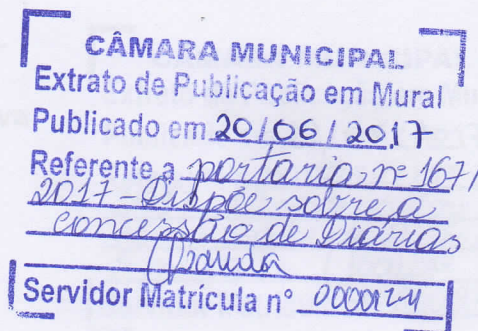 CÂMARA MUNICIPAL
Extrato de Publicação em Mural
Publicado em 20/06/2017
Referente a portaria nº 167/
2017 - Dispõe sobre a
concessão de Diárias
Servidor Matrícula nº